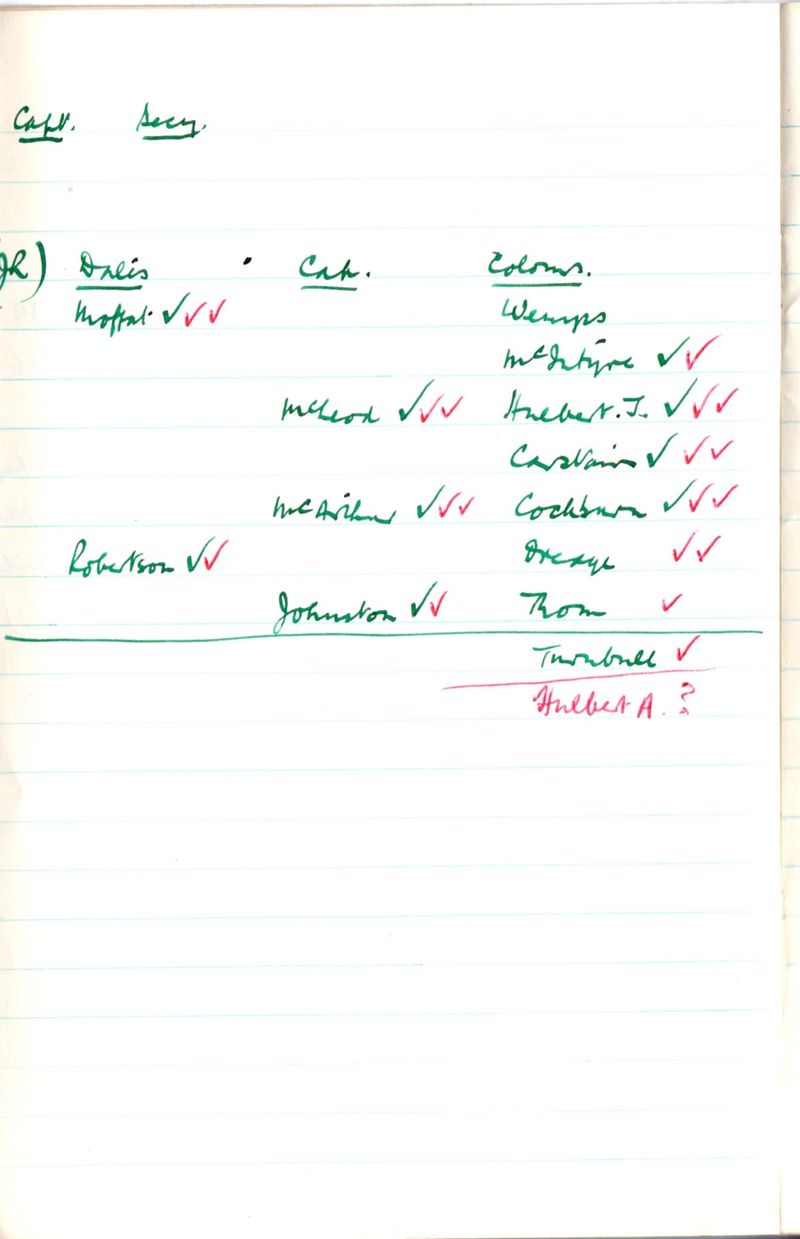 Capt. Secy.
JR) Dalis Cap. Colours.
Moffat ✓✓✓ Wemyss
McIntyre ✓✓
McLeod ✓✓✓ Hulbert. J. ✓✓✓
Carstairs ✓✓✓
McArthur ✓✓✓ Cockburn ✓✓✓
Robertson ✓✓ Dreaye ✓✓
Johnston ✓✓ Thom ✓
Turnbull ✓
Hulbert A. ?